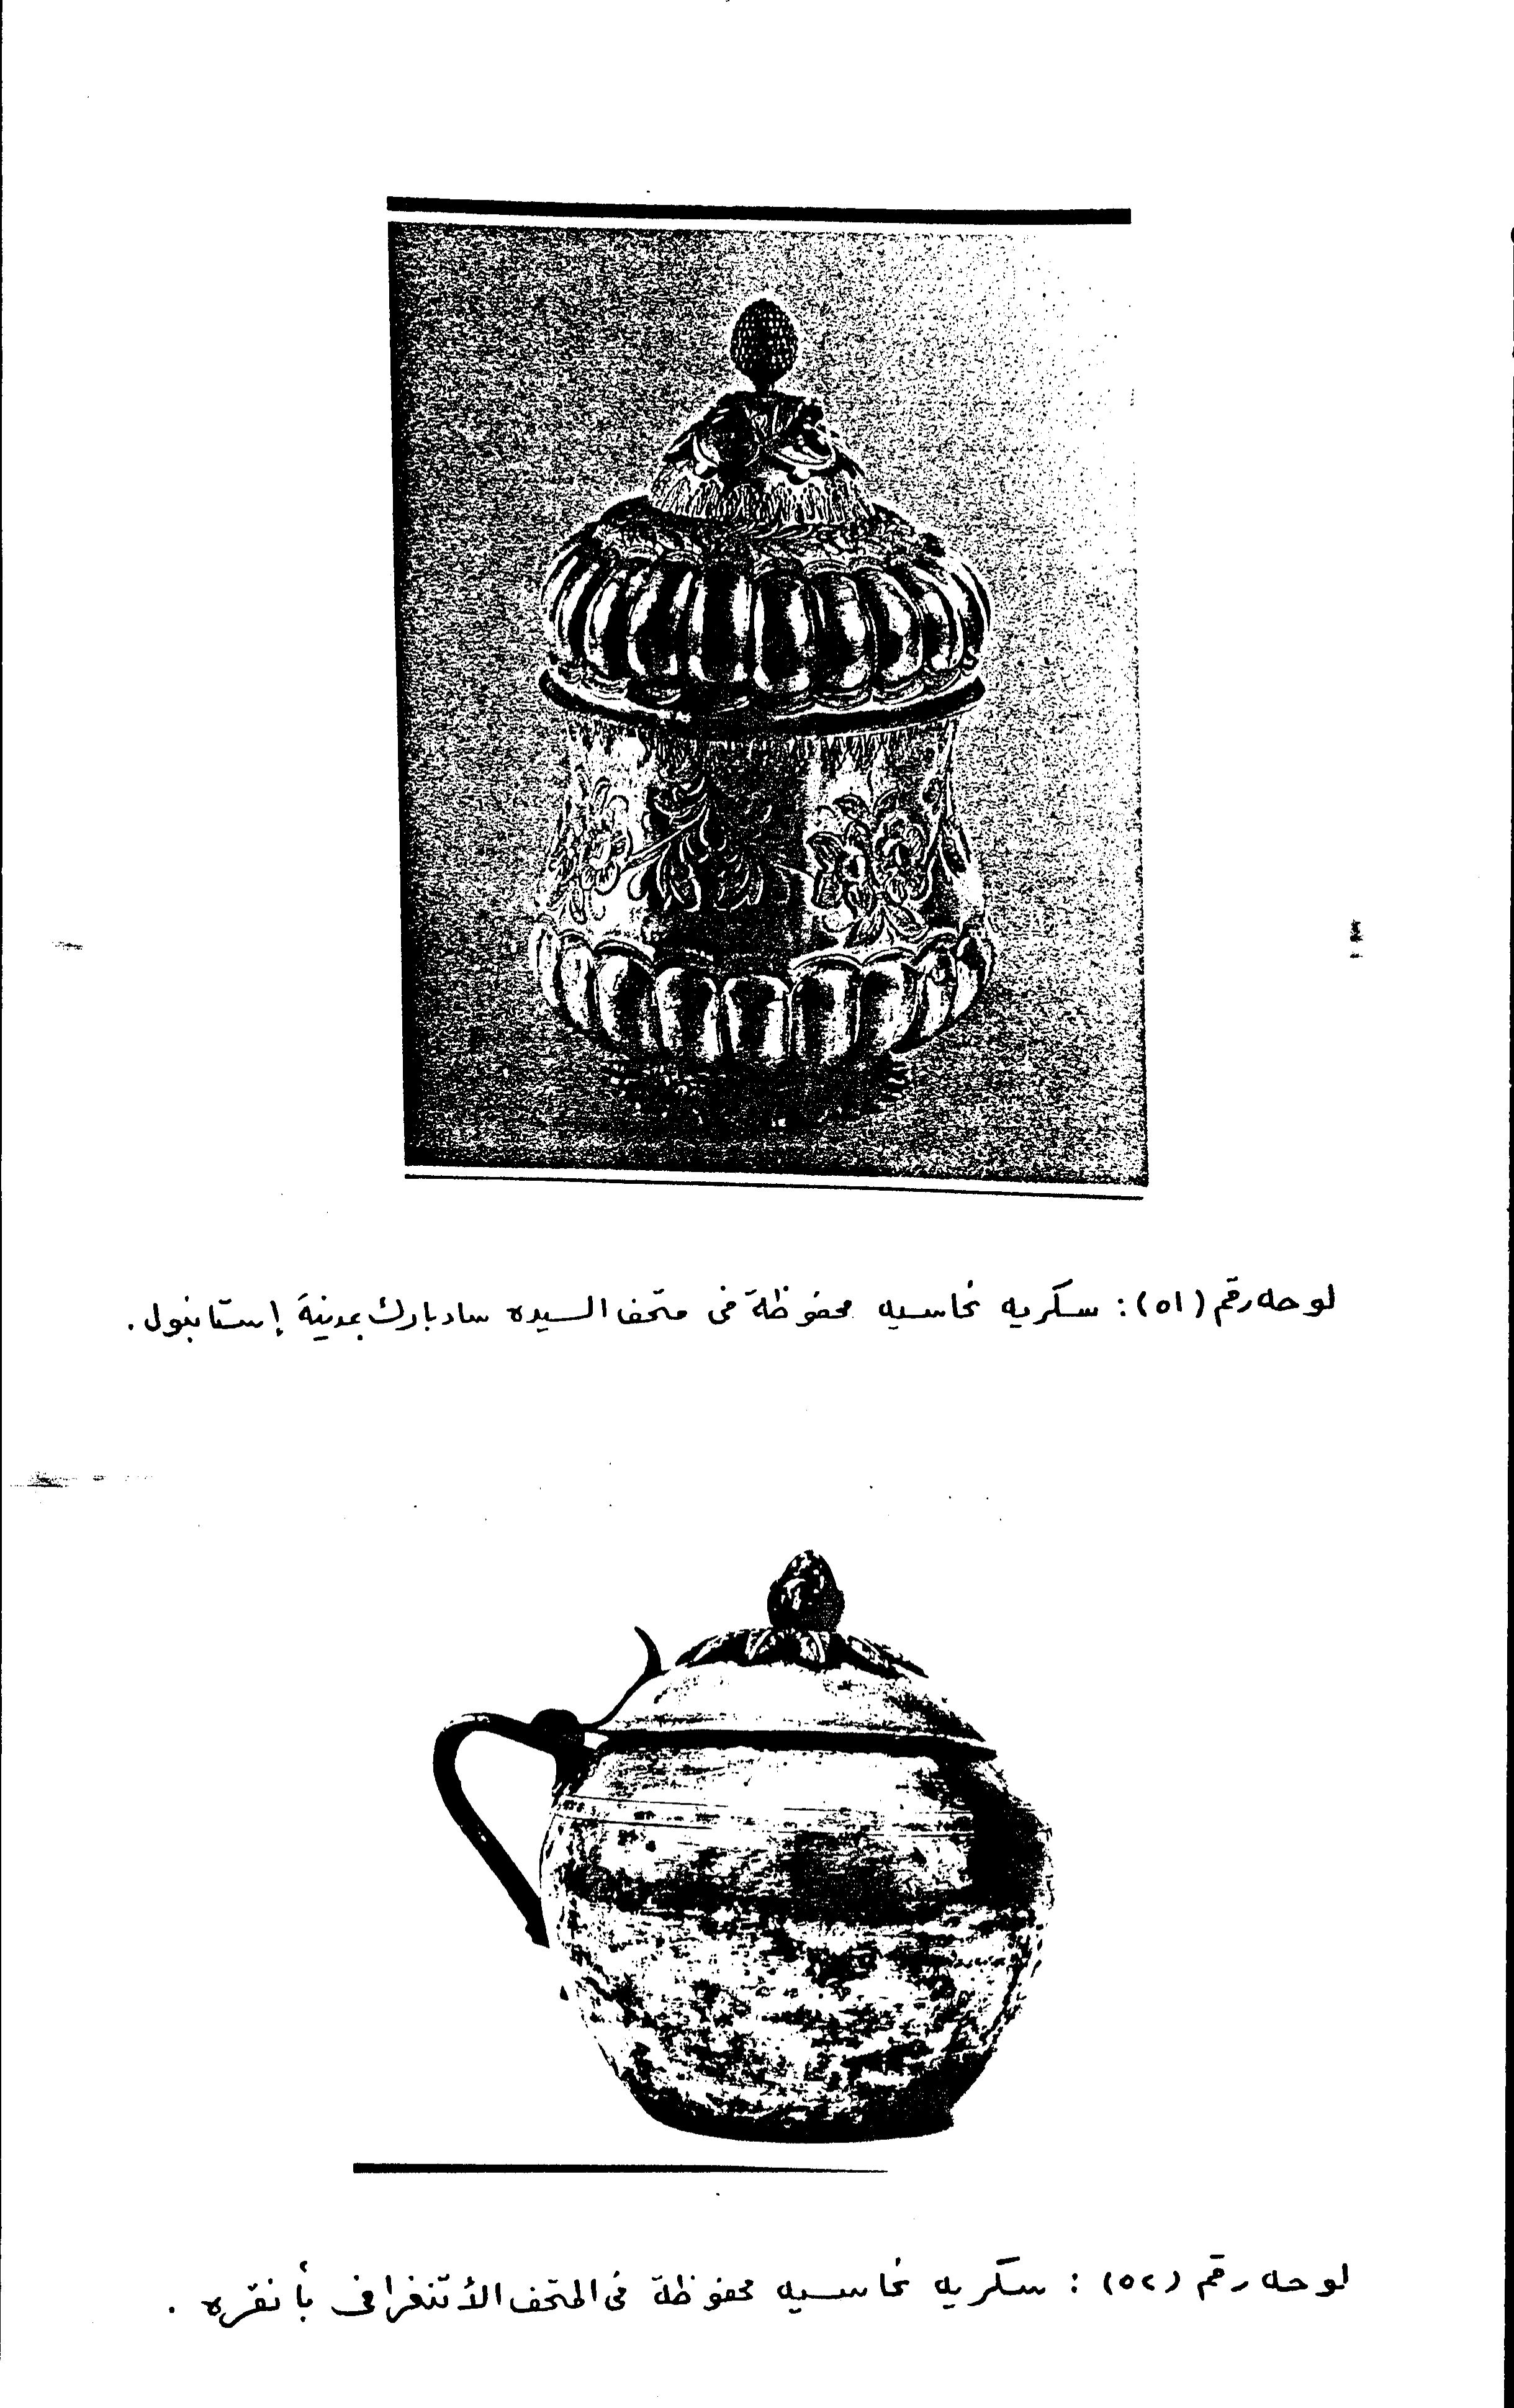 لوحه رقم (٥١): سكريه نحاسيه محفوظة فى متحف السيده سادبارك بمدينة إستانبول.
لوحه رقم (٥٢): سكريه نحاسيه محفوظة فى المتحف الأتنغرافى بأنقره.